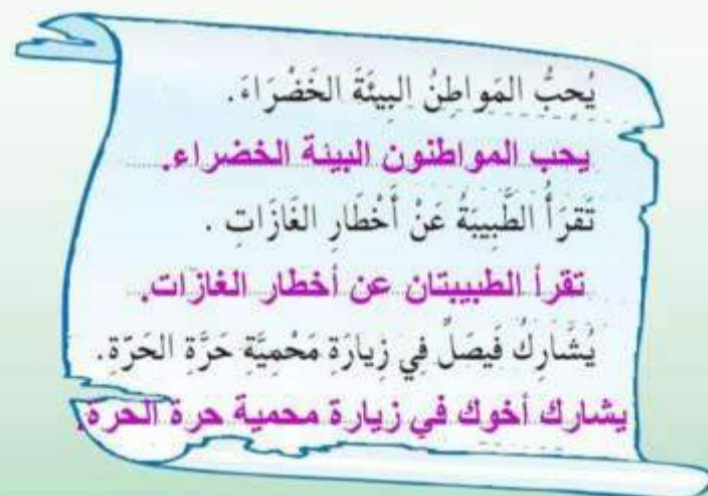 يُحِبُّ المَواطِنُ البِيئَةَ الخَضْرَاءَ.
يحب المواطنون البيئة الخضراء.
تَقرَأُ الطَّبِيبَةُ عَنْ أَخْطَارِ الغَازَاتِ .
تقرأ الطبيبتان عن أخطار الغازات.
يُشَارِكُ فَيصَلٌ فِي زِيارَةِ مَحْمِيَّةِ حَرَّةِ الحَرّةِ.
يشارك أخوك في زيارة محمية حرة الحرة.